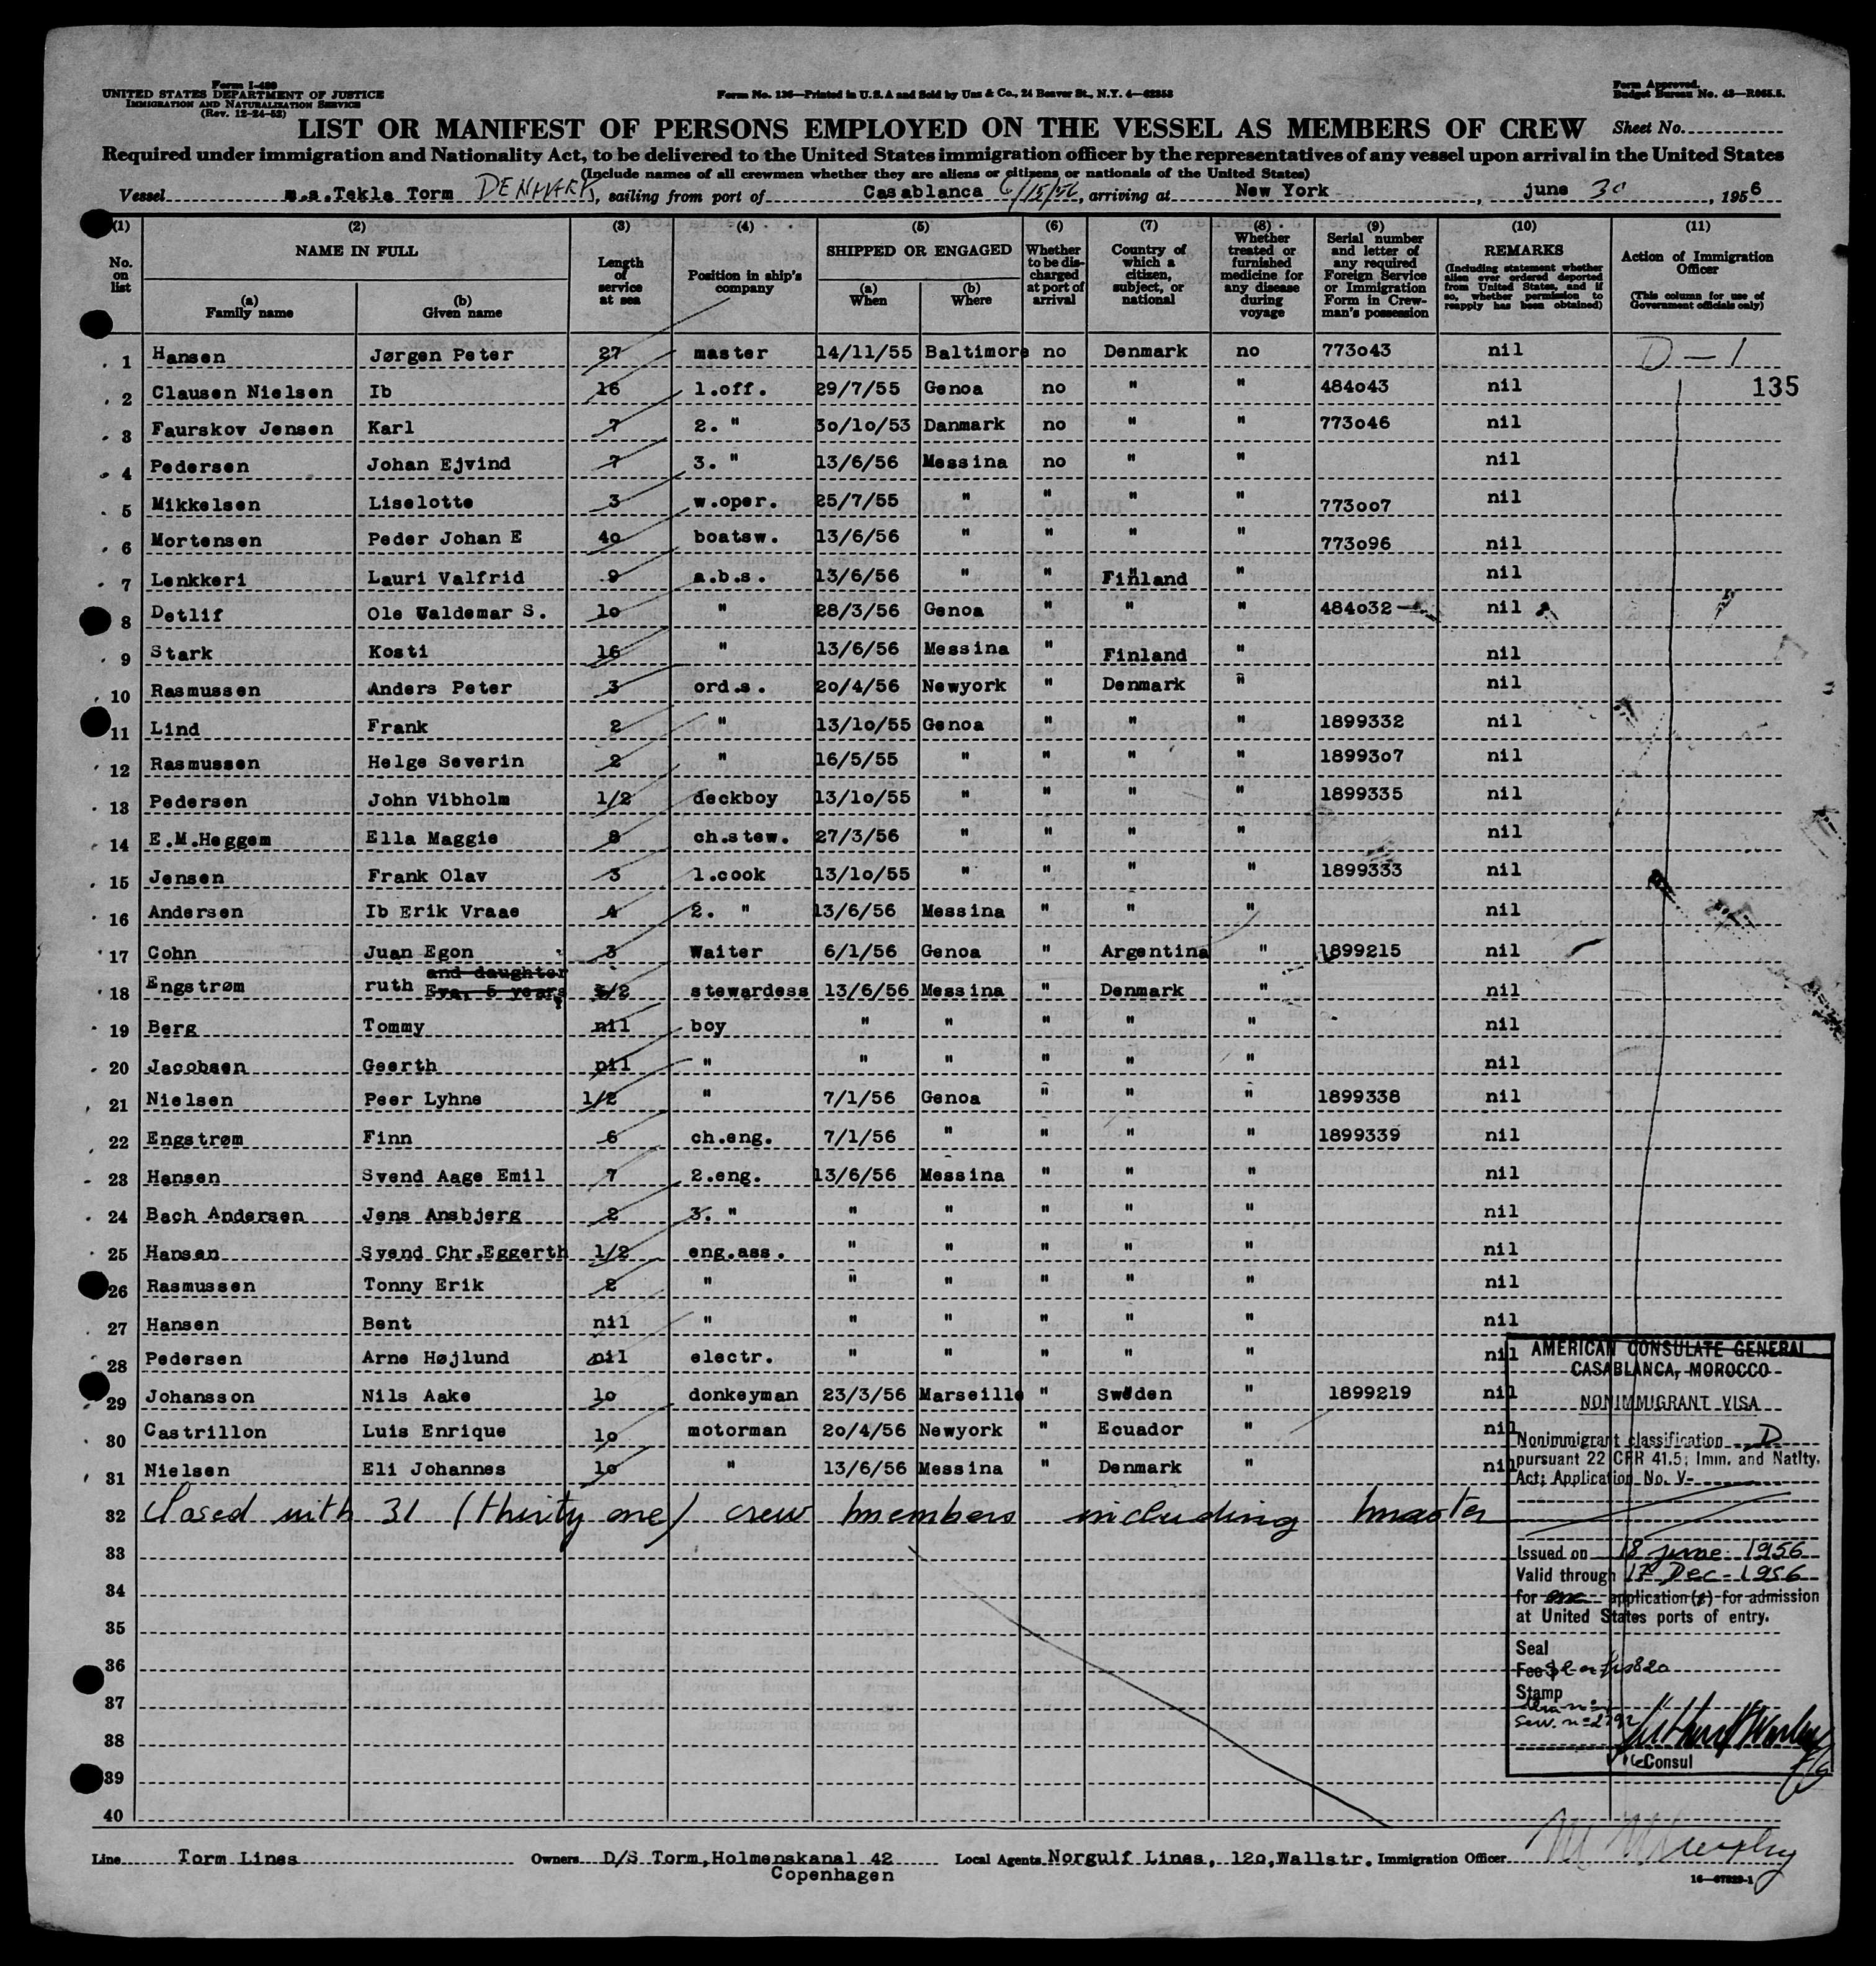 Form I-489
UNITED STATES DEPARTMENT OF JUSTICE
IMMIGRATION AND NATURALIZATION SERVICE
(Rev. 12-24-52)
Form No. 136—Printed in U.S.A and Sold by Unz & Co., 24 Beaver St., N.Y. 4—62353
Form Approved.
Budget Bureau No. 43—R065.5.
LIST OR MANIFEST OF PERSONS EMPLOYED ON THE VESSEL AS MEMBERS OF CREW Sheet No.
Required under immigration and Nationality Act, to be delivered to the United States immigration officer by the representatives of any vessel upon arrival in the United States
(Include names of all crewmen whether they are aliens or citizens or nationals of the United States)
Vessel m.s.Tekla Torm DENMARK, sailing from port of Casablanca 6/15/56, arriving at New York, june 30, 1956
(1) (2) (3) (4) (5) (6) (7) (8) (9) (10) (11)
No. on list
NAME IN FULL
(a) Family name
(b) Given name
Length of service at sea
Position in ship's company
SHIPPED OR ENGAGED
(a) When
(b) Where
Whether to be discharged at port of arrival
Country of which a citizen, subject, or national
Whether treated or furnished medicine for any disease during voyage
Serial number and letter of any required Foreign Service or Immigration Form in Crewman's possession
REMARKS
(Including statement whether alien ever ordered deported from United States, and if so, whether permission to reapply has been obtained)
Action of Immigration Officer
(This column for use of Government officials only)
1 Hansen Jørgen Peter 27 master 14/11/55 Baltimore no Denmark no 773o43 nil D-1
2 Clausen Nielsen Ib 16 1.off. 29/7/55 Genoa no " " 484o43 nil 135
3 Faurskov Jensen Karl 7 2. " 3o/1o/53 Danmark no " " 773o46 nil
4 Pedersen Johan Ejvind 7 3. " 13/6/56 Messina no " " nil
5 Mikkelsen Liselotte 3 w.oper. 25/7/55 " " " " 773oo7 nil
6 Mortensen Peder Johan E 4o boatsw. 13/6/56 " " " " 773o96 nil
7 Lenkkeri Lauri Valfrid 9 a.b.s. 13/6/56 " " Finland " nil
8 Detlif Ole Waldemar S. 1o " 28/3/56 Genoa " " " 484o32 nil
9 Stark Kosti 16 " 13/6/56 Messina " Finland " nil
10 Rasmussen Anders Peter 3 ord.s. 2o/4/56 Newyork " Denmark " nil
11 Lind Frank 2 " 13/1o/55 Genoa " " " 1899332 nil
12 Rasmussen Helge Severin 2 " 16/5/55 " " " " 18993o7 nil
13 Pedersen John Vibholm 1/2 deckboy 13/1o/55 " " " " 1899335 nil
14 E.M.Heggem Ella Maggie 8 ch.stew. 27/3/56 " " " " nil
15 Jensen Frank Olav 3 1.cook 13/1o/55 " " " " 1899333 nil
16 Andersen Ib Erik Vraae 4 2. " 13/6/56 Messina " " " nil
17 Cohn Juan Egon 3 Waiter 6/1/56 Genoa " Argentina " 1899215 nil
and daughter
18 Engstrøm ruth Eva, 5 years 1/2 stewardess 13/6/56 Messina " Denmark " nil
19 Berg Tommy nil boy " " " " " nil
20 Jacobsen Geerth nil " " " " " " nil
21 Nielsen Peer Lyhne 1/2 " 7/1/56 Genoa " " " 1899338 nil
22 Engstrøm Finn 6 ch.eng. 7/1/56 " " " " 1899339 nil
23 Hansen Svend Aage Emil 7 2.eng. 13/6/56 Messina " " " nil
24 Bach Andersen Jens Ansbjerg 2 3. " " " " " " nil
25 Hansen Svend Chr.Eggerth 1/2 eng.ass. " " " " " nil
26 Rasmussen Tonny Erik 2 " " " " " " nil
27 Hansen Bent nil " " " " " " nil
28 Pedersen Arne Højlund nil electr. " " " " " nil
29 Johansson Nils Aake 1o donkeyman 23/3/56 Marseille " Sweden " 1899219 nil
30 Castrillon Luis Enrique 1o motorman 2o/4/56 Newyork " Ecuador " nil
31 Nielsen Eli Johannes 1o " 13/6/56 Messina " Denmark " nil
32 Closed with 31 (thirty one) crew members including master
33
34
35
36
37
38
39
40
AMERICAN CONSULATE GENERAL
CASABLANCA, MOROCCO
NONIMMIGRANT VISA
Nonimmigrant classification D
pursuant 22 CFR 41.5; Imm. and Natlty.
Act; Application No. V-
Issued on 18 june 1956
Valid through 17 Dec. 1956
for one application(s) for admission
at United States ports of entry.
Seal
Fee
Stamp
Serv. n=2792
Consul
Line Torm Lines Owners D/S Torm,Holmenskanal 42 Local Agents Norgulf Lines, 12o,Wallstr. Immigration Officer
Copenhagen
16—67829-1